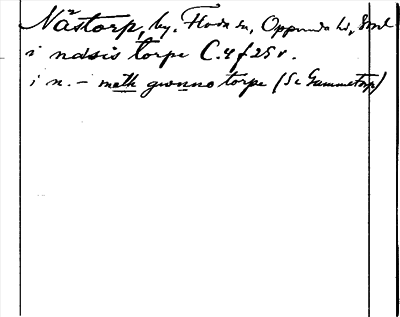 Nåstorp, by. Floda sn, Oppunda hd, Sml
i nasis torpe C. 4 f 25 v.
i n. – meth gwnno torpe (Se Gammetorp)